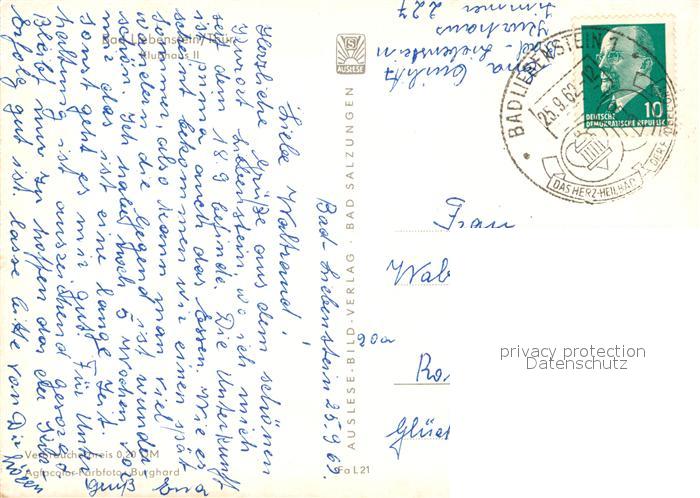 Bad Liebenstein/Thür.
Klubhaus II
Bad Liebenstein 25.9.62
Liebe Waltraud!
Herzliche Grüße aus dem schönen
Kurort Liebenstein, wo ich mich
seit dem 18.9. befinde. Die Unterkunft
ist prima auch das Essen, wie es
scheint bekommen wir einen spät
sommer, also kann man viel
wandern die Gegend ist wunder
schön. Ich habe noch 5 Wochen vor
mir das ist eine lange Zeit.
sonst geht es mir gut. Für Unter
haltung ist ausreichend gesorgt.
Bleibt nur zu hoffen das die
Erfolg gut ist. lasse bitte von Dir hören
Gruß
Verbraucherpreis 0,20 DM
Agfacolor-Farbfoto: Burghard
Fa L 21
AUSLESE
AUSLESE-BILD-VERLAG · BAD SALZUNGEN
Bad-Liebenstein
Kurhaus
Zimmer 227
BAD LIEBENSTEIN 1
25.9.62-12
DAS HERZ-HEILBAD
DER
10
DEUTSCHE
DEMOKRATISCHE REPUBLIK
Frau
Wal
20a
Ro
Glück
privacy protection
Datenschutz